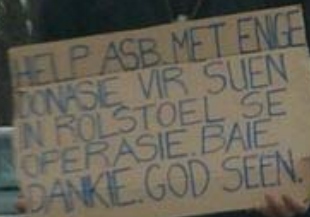 HELP ASB. MET ENIGE
DONASIE VIR SUEN
IN ROLSTOEL SE
OPERASIE. BAIE
DANKIE. GOD SEEN.